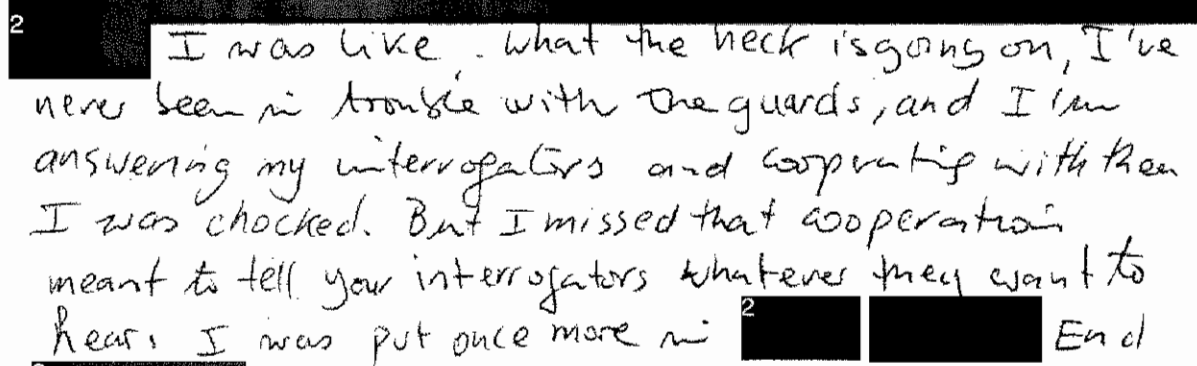 2 I was like, what the heck is going on, I've
never been in trouble with the guards, and I'm
answering my interrogators and cooperating with them
I was chocked. But I missed that cooperation
meant to tell your interrogators whatever they want to
hear. I was put once more in 2 End